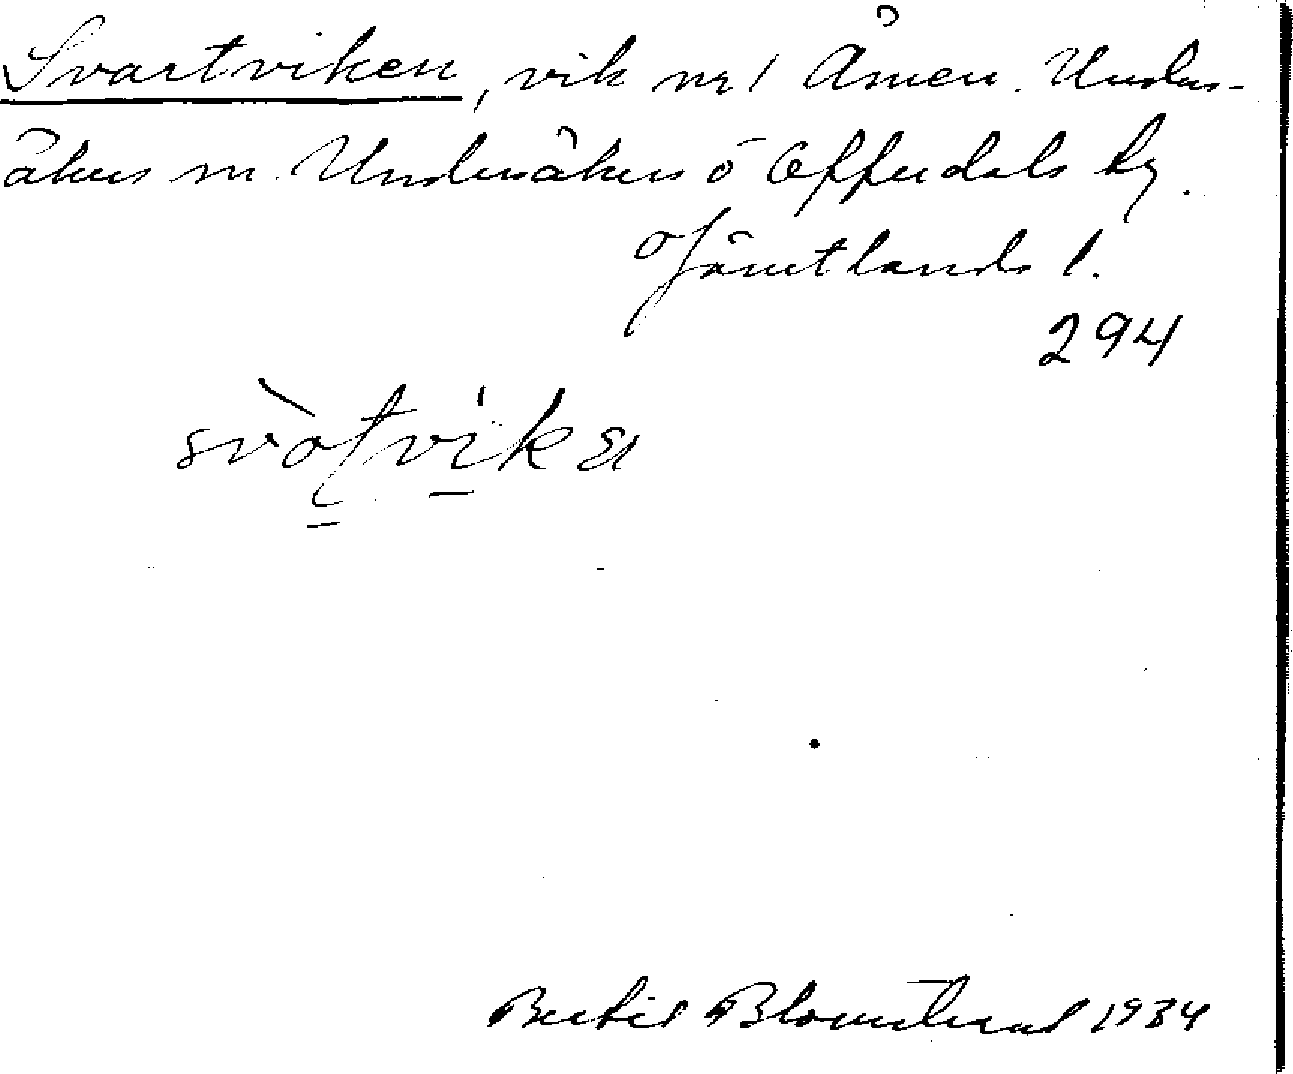 Svartviken, vik nr 1 Ånnen. Unders-
åkers sn. Undersåkers o Offerdals tg.
Jämtlands l.
294
Bertil Blomstrand 1934